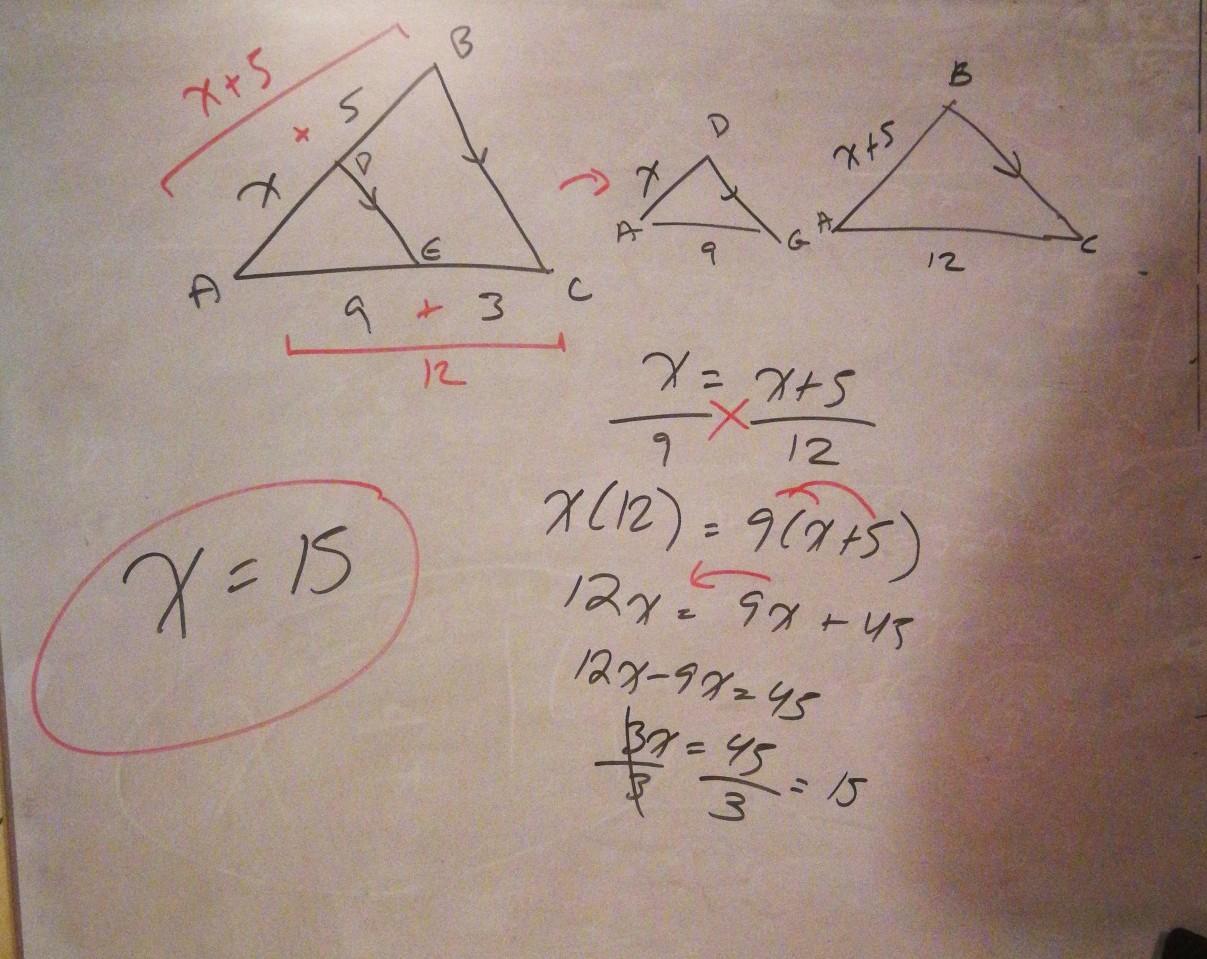 x+5
B
5
+
x
D
E
A
C
9 + 3
12
D
x
A
G
9
B
x+5
A
C
12
x = x+5
9 12
x(12) = 9(x+5)
12x = 9x + 45
12x-9x=45
3x = 45
3 3 = 15
x = 15